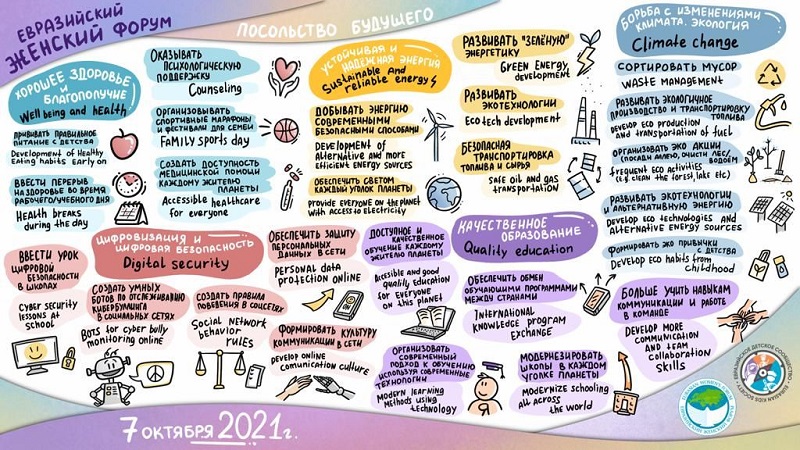 ЕВРАЗИЙСКИЙ
ЖЕНСКИЙ ФОРУМ
ПОСОЛЬСТВО БУДУЩЕГО
ХОРОШЕЕ ЗДОРОВЬЕ
и
БЛАГОПОЛУЧИЕ
Well being and health
ПРИВИВАТЬ ПРАВИЛЬНОЕ
ПИТАНИЕ С ДЕТСТВА
Development of Healthy
Eating habits Early on
ВВЕСТИ ПЕРЕРЫВ
НА ЗДОРОВЬЕ ВО ВРЕМЯ
РАБОЧЕГО/УЧЕБНОГО ДНЯ
Health breaks
during the day
ОКАЗЫВАТЬ
ПСИХОЛОГИЧЕСКУЮ
ПОДДЕРЖКУ
Counseling
ОРГАНИЗОВЫВАТЬ
СПОРТИВНЫЕ МАРАФОНЫ
И ФЕСТИВАЛИ ДЛЯ СЕМЬИ
FAMILY sports day
СОЗДАТЬ ДОСТУПНОСТЬ
МЕДИЦИНСКОЙ ПОМОЩИ
КАЖДОМУ ЖИТЕЛЮ
ПЛАНЕТЫ
Accessible healthcare
for everyone
УСТОЙЧИВАЯ И
НАДЕЖНАЯ ЭНЕРГИЯ
Sustainable and
reliable energy
ДОБЫВАТЬ ЭНЕРГИЮ
СОВРЕМЕННЫМИ
БЕЗОПАСНЫМИ СПОСОБАМИ
Development of
alternative and more
efficient energy sources
ОБЕСПЕЧИТЬ СВЕТОМ
КАЖДЫЙ УГОЛОК ПЛАНЕТЫ
PROVIDE EVERYONE ON THE PLANET
WITH ACCESS TO ELECTRICITY
РАЗВИВАТЬ "ЗЕЛЁНУЮ"
ЭНЕРГЕТИКУ
GREEN ENERGY
DEVELOPMENT
РАЗВИВАТЬ
ЭКОТЕХНОЛОГИИ
Ecotech development
БЕЗОПАСНАЯ
ТРАНСПОРТИРОВКА
ТОПЛИВА И СЫРЬЯ
Safe oil and gas
transportation
БОРЬБА С ИЗМЕНЕНИЯМИ
КЛИМАТА. ЭКОЛОГИЯ
Climate change
СОРТИРОВАТЬ МУСОР
WASTE MANAGEMENT
РАЗВИВАТЬ ЭКОЛОГИЧНОЕ
ПРОИЗВОДСТВО И ТРАНСПОРТИРОВКУ
ТОПЛИВА
DEVELOP ECO PRODUCTION
AND TRANSPORTATION OF FUEL
ОРГАНИЗОВАТЬ ЭКО АКЦИИ
(ПОСАДИ АЛЛЕЮ, ОЧИСТИ ЛЕС,
ВОДОЁМ)
frequent eco activities
(e.g. clean the forest, lake etc)
РАЗВИВАТЬ ЭКОТЕХНОЛОГИИ
И АЛЬТЕРНАТИВНУЮ ЭНЕРГИЮ
DEVELOP ECO TECHNOLOGIES AND
ALTERNATIVE ENERGY SOURCES
ФОРМИРОВАТЬ ЭКО ПРИВЫЧКИ
С ДЕТСТВА
DEVELOP ECO HABITS FROM
CHILDHOOD
ЦИФРОВИЗАЦИЯ И
ЦИФРОВАЯ БЕЗОПАСНОСТЬ
Digital security
ВВЕСТИ УРОК
ЦИФРОВОЙ
БЕЗОПАСНОСТИ
В ШКОЛАХ
CYBER SECURITY
LESSONS AT
SCHOOL
СОЗДАТЬ УМНЫХ
БОТОВ ПО ОТСЛЕЖИВАНИЮ
КИБЕРБУЛЛИНГА
В СОЦИАЛЬНЫХ СЕТЯХ
BOTS for cyber bully
monitoring online
СОЗДАТЬ ПРАВИЛА
ПОВЕДЕНИЯ В СОЦСЕТЯХ
Social network
behavior
rules
ОБЕСПЕЧИТЬ ЗАЩИТУ
ПЕРСОНАЛЬНЫХ
ДАННЫХ В СЕТИ
PERSONAL DATA
PROTECTION ONLINE
ФОРМИРОВАТЬ КУЛЬТУРУ
КОММУНИКАЦИИ В СЕТИ
DEVELOP ONLINE
COMUNICATION CULTURE
ДОСТУПНОЕ И
КАЧЕСТВЕННОЕ
ОБУЧЕНИЕ КАЖДОМУ
ЖИТЕЛЮ ПЛАНЕТЫ
Accessible and good
quality education
for EVERYONE
on this planet
КАЧЕСТВЕННОЕ
ОБРАЗОВАНИЕ
Quality education
ОБЕСПЕЧИТЬ ОБМЕН
ОБУЧАЮЩИМИ ПРОГРАММАМИ
МЕЖДУ СТРАНАМИ
INTERNATIONAL
KNOWLEDGE PROGRAM
EXCHANGE
ОРГАНИЗОВАТЬ
СОВРЕМЕННЫЙ
ПОДХОД К ОБУЧЕНИЮ
ИСПОЛЬЗУЯ СОВРЕМЕННЫЕ
ТЕХНОЛОГИИ
Modern learning
methods using
technology
МОДЕРНИЗИРОВАТЬ
ШКОЛЫ В КАЖДОМ
УГОЛКЕ ПЛАНЕТЫ
MODERNIZE SCHOOLING
ALL ACROSS
THE WORLD
БОЛЬШЕ УЧИТЬ НАВЫКАМ
КОММУНИКАЦИИ И РАБОТЕ
В КОМАНДЕ
DEVELOP MORE
COMMUNICATION
AND TEAM
COLLABORATION
SKILLS
ЕВРАЗИЙСКОЕ ДЕТСКОЕ СООБЩЕСТВО
EURASIAN KIDS SOCIETY
7 ОКТЯБРЯ 2021г.